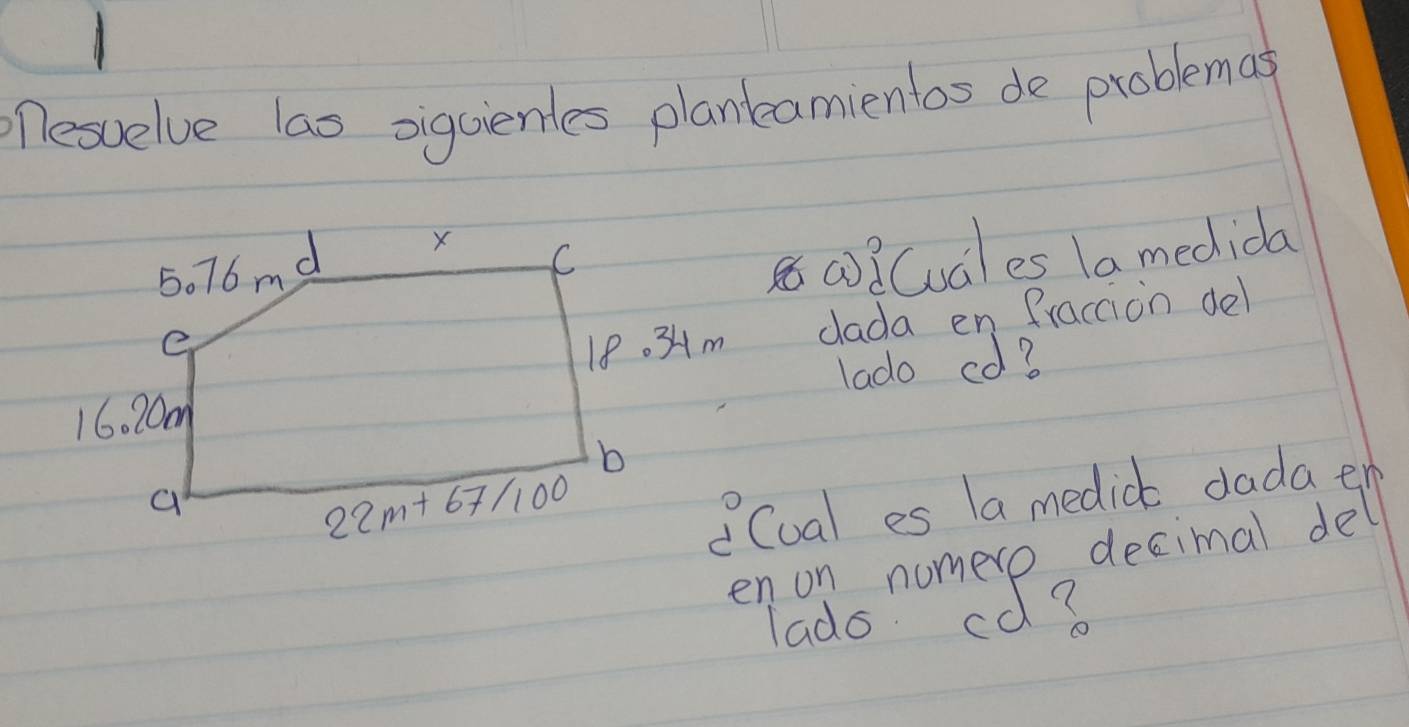 1
Resuelve las siguientes planteamientos de problemas
5.76 m d x c
e
18.34 m
16.20m
a b
22m + 67/100
a) ¿Cuál es la medida
dada en fracción del
lado cd?
¿Cual es la medida dada en
en un numero decimal del
lado cd?